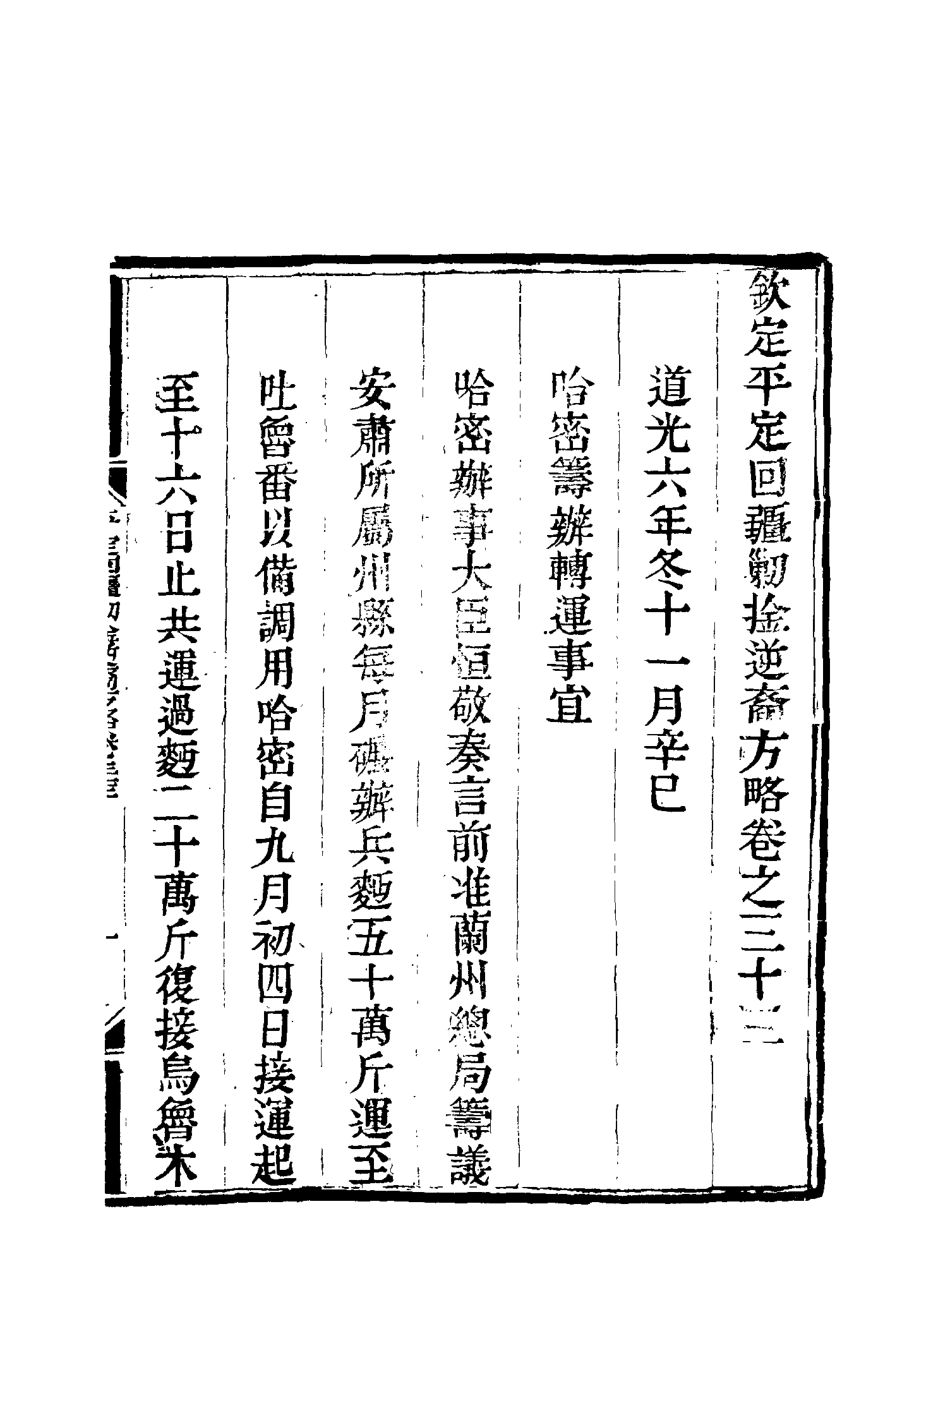 欽定平定回疆勦捦逆裔方略卷之三十三
道光六年冬十一月辛巳
哈密籌辦轉運事宜
哈密辦事大臣恒敬奏言前准蘭州總局籌議
安肅所屬州縣每月碾辦兵麪五十萬斤運至
吐魯番以備調用哈密自九月初四日接運起
至十六日止共運過麪二十萬斤復接烏魯木